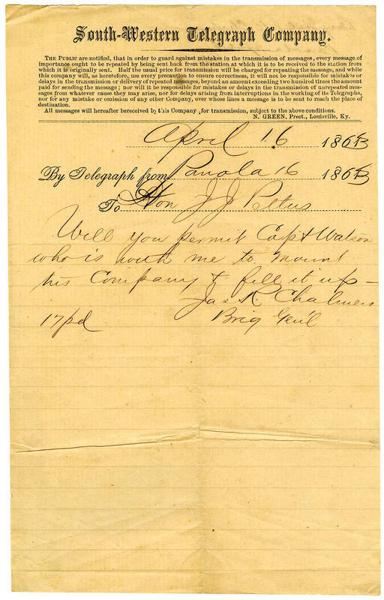 South-Western Telegraph Company.
THE PUBLIC are notified, that in order to guard against mistakes in the transmission of messages, every message of
importance ought to be repeated by being sent back from the station at which it is to be received to the station from
which it is originally sent. Half the usual price for transmission will be charged for repeating the message, and while
this company will, as heretofore, use every precaution to ensure correctness, it will not be responsible for mistakes or
delays in the transmission or delivery of repeated messages, beyond an amount exceeding two hundred times the amount
paid for sending the message; nor will it be responsible for mistakes or delays in the transmission of unrepeated mes-
sages from whatever cause they may arise, nor for delays arising from interruptions in the working of its Telegraphs,
nor for any mistake or omission of any other Company, over whose lines a message is to be sent to reach the place of
destination.
All messages will hereafter be received by this Company for transmission, subject to the above conditions.
N. GREEN, Prest., Louisville, Ky.
April 16 1863
By Telegraph from Panola 16 1863
To Hon J J Pettus
Will you permit Capt Watson
who is with me to mount
his Company & fill it up -
Jas R Chalmers
17pd Brig Genl